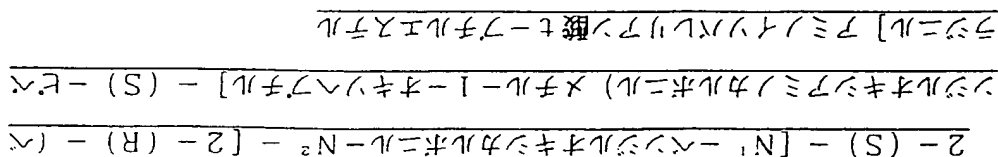 2-(S)-[N¹-ベンジルオキシカルボニル-N²-[2-(R)-(ベ
ンジルオキシアミノカルボニル)メチル-1-オキソヘプチル]-(S)-ピペ
ラジニル]アミノイソバレリアン酸t-ブチルエステル